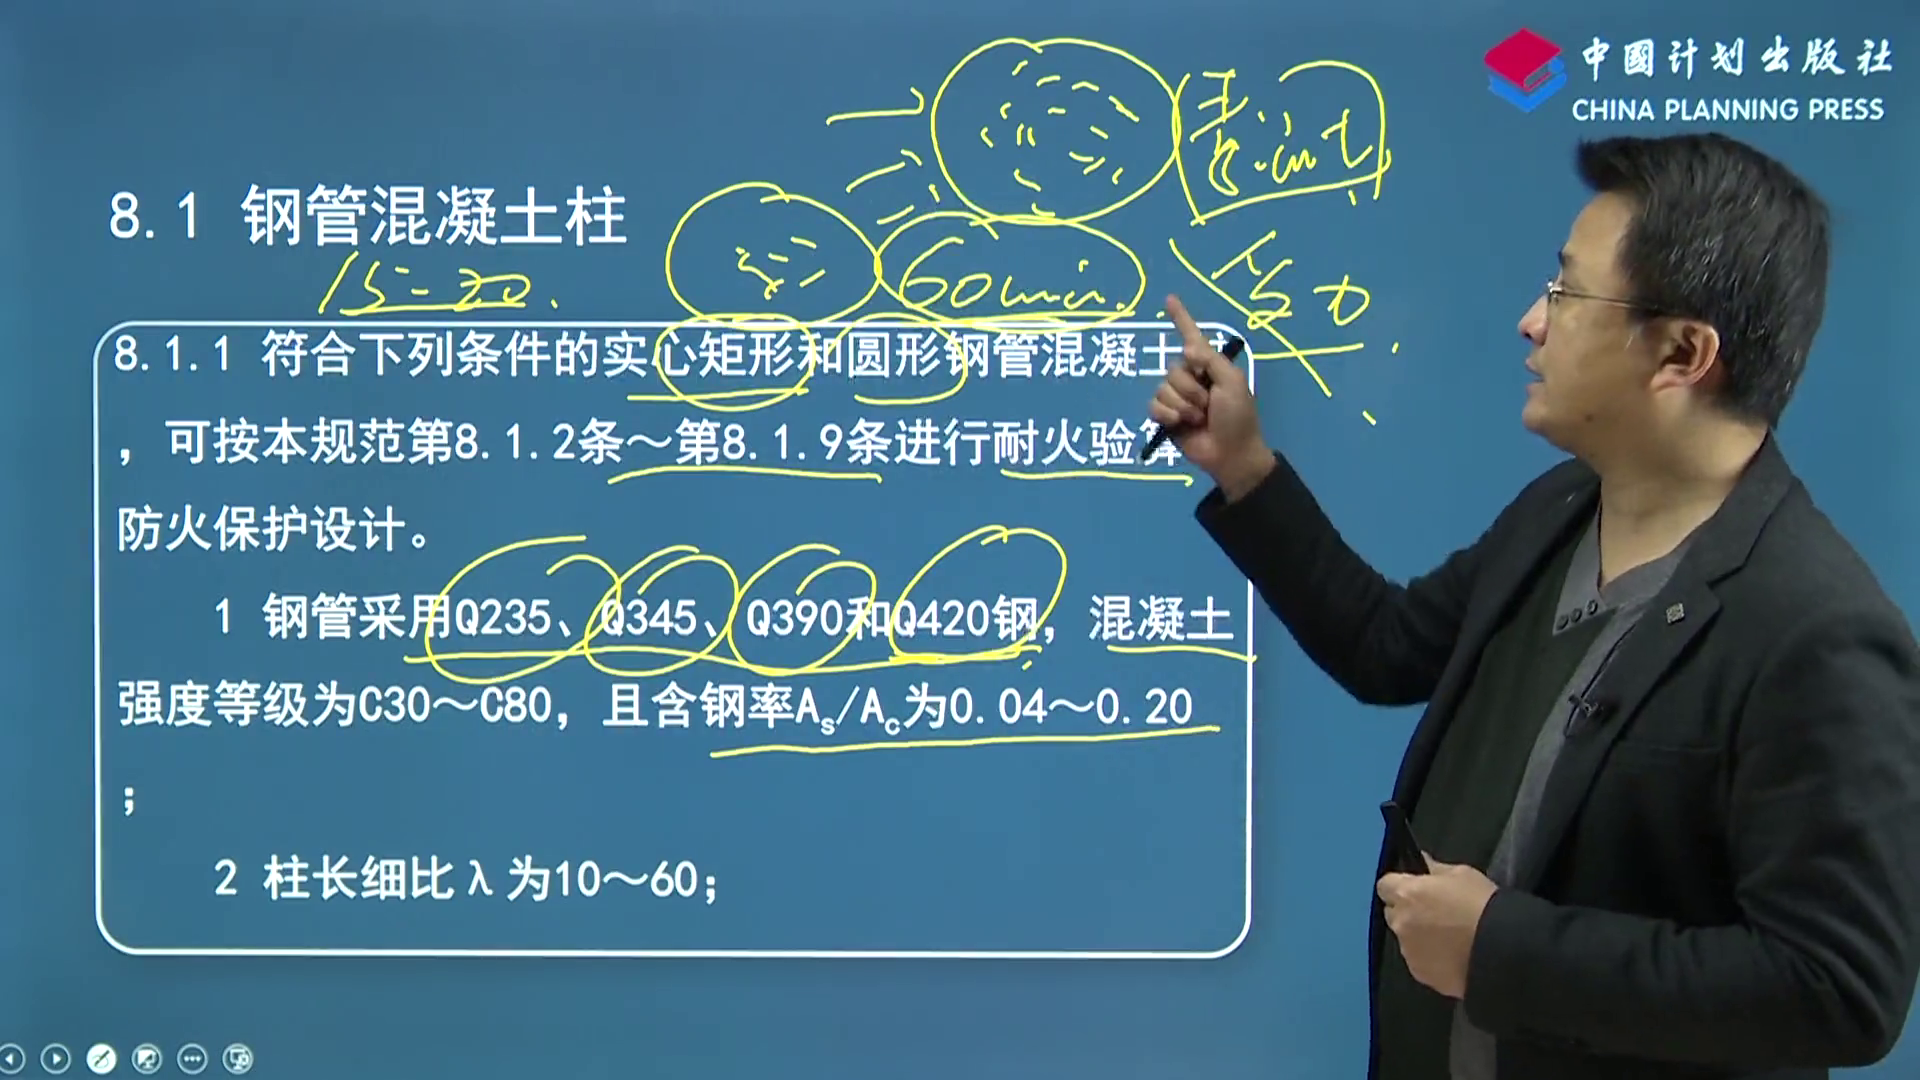 中國计划出版社
CHINA PLANNING PRESS
8.1 钢管混凝土柱
15-20.
60min.
8.1.1 符合下列条件的实心矩形和圆形钢管混凝土
，可按本规范第8.1.2条～第8.1.9条进行耐火验算
防火保护设计。
1 钢管采用Q235、Q345、Q390和Q420钢，混凝土
强度等级为C30～C80，且含钢率As/Ac为0.04～0.20
；
2 柱长细比λ为10～60；